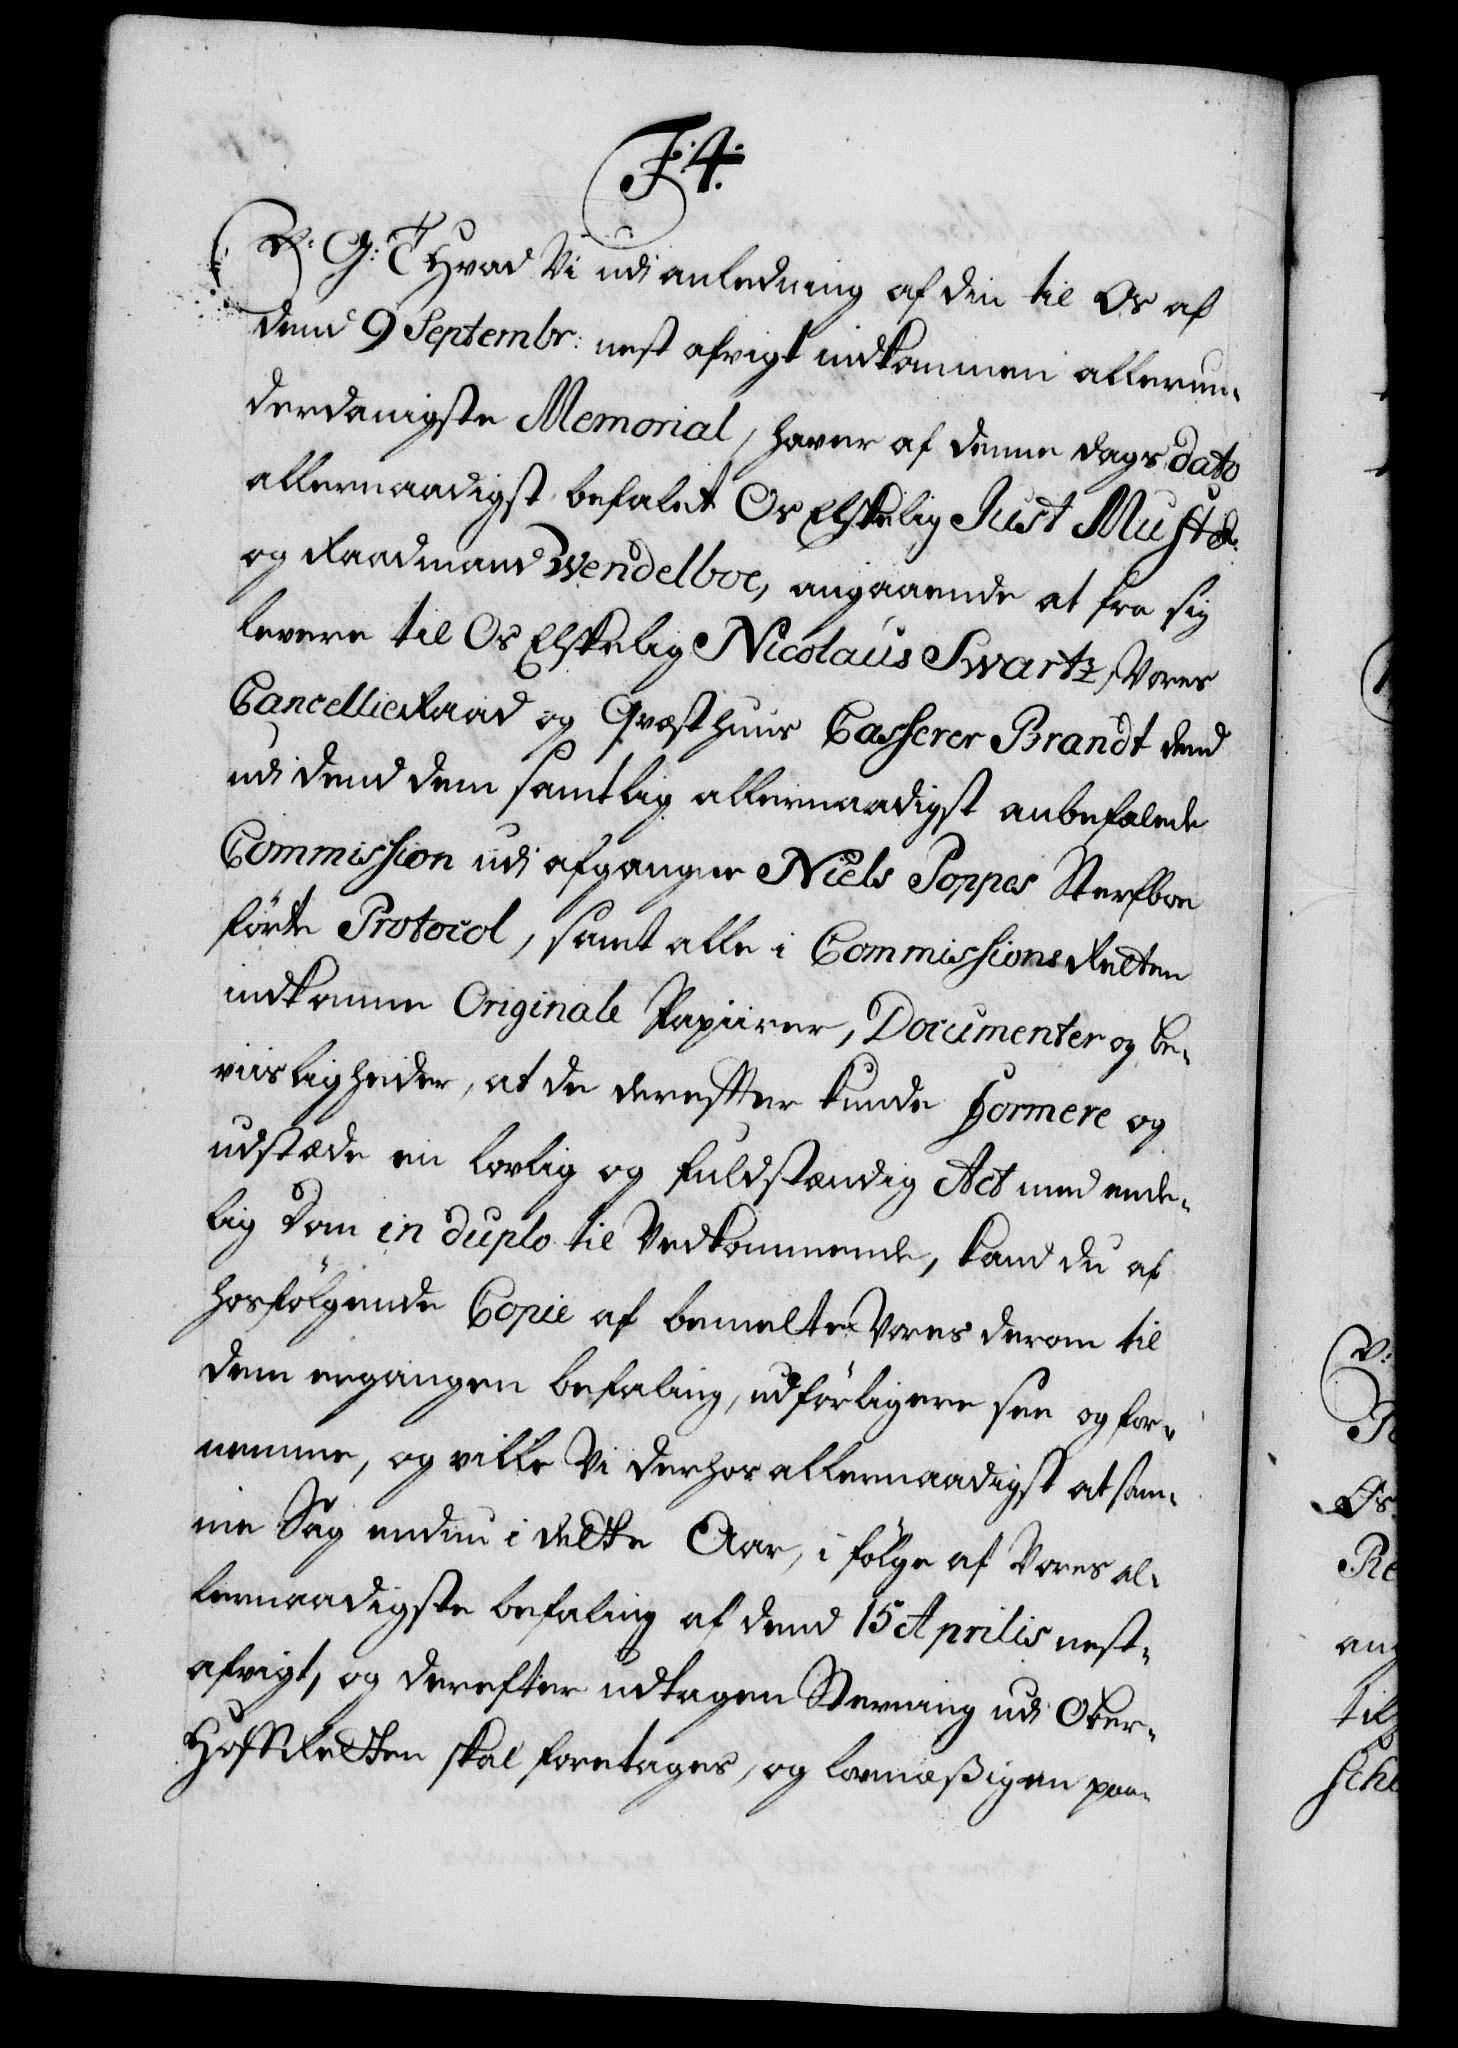 F:4.
V: G: T Hvad Vi udi anledning af din til Os af
dend 9 Septembr: nest afvigt indkommen allerun-
derdanigste Memorial, haver af denne dags dato
allernaadigst befalet Os Elskelig Just Must
og Raadmand Wendelboe, angaaende at fra sig
levere til Os Elskelig Nicolaus Swartz, Vores
CancellieRaad og Qvæsthuus Casserer Brandt dend
udi dend dem samtlig allernaadigst anbefalede
Commission udi afgangne Niels Poppes Sterfboe
førte Protocol, samt alle i CommissionsRetten
indkomne Originale Papiirer, Documenter og be-
viisligheder, at de derefter kunde formere og
udstæde en lovlig og fuldstændig Act med ende-
lig Dom in duplo til Vedkommende, kand du af
hosfølgende Copie af bemelte Vores derom til
dem ergangen befaling, udførligere see og for-
nemme, og ville Vi derhos allernaadigst at sam-
me Sag endnu i dette Aar, i følge af Vores al-
lernaadigste befaling af dend 15 Aprilis nest-
afvigt, og derefter udtagen Stevning udi Ober-
HoffRetten skal foretages, og lovmæßigen paa-